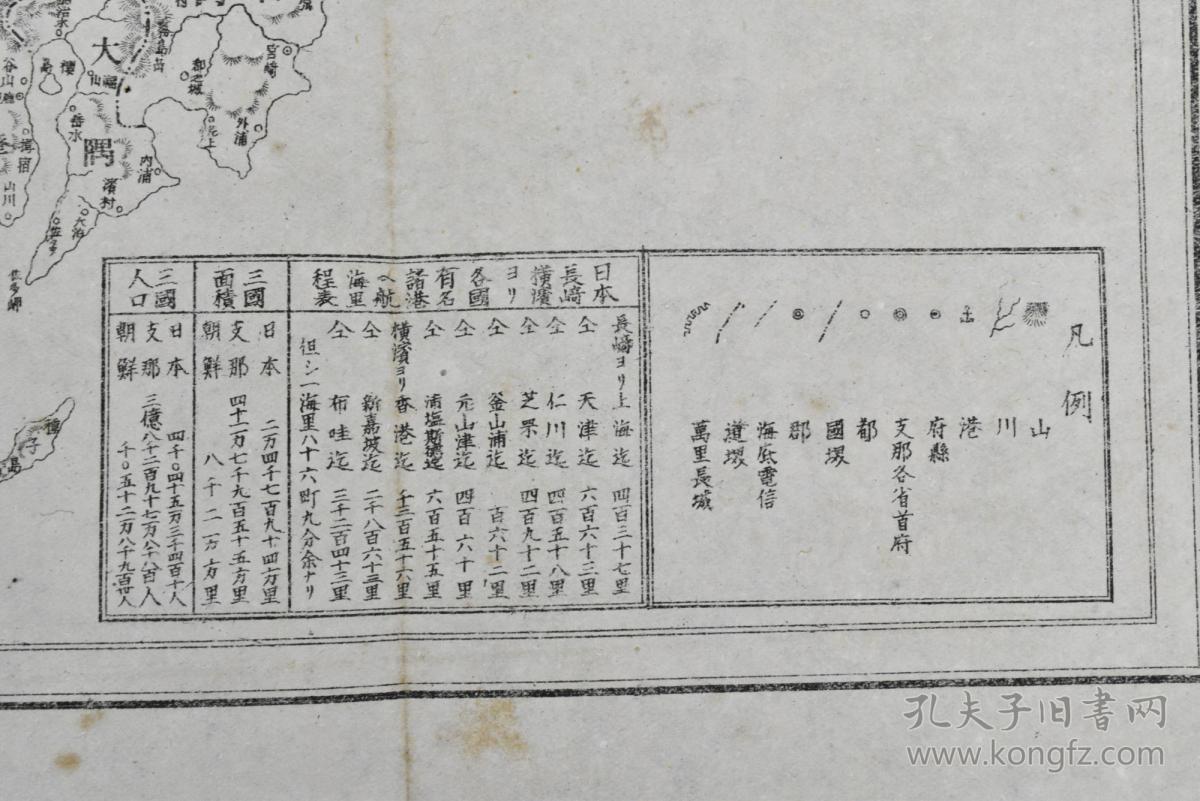 大
隅
宮崎
都之城
外浦
内浦
垂水
櫻
島
福山
濱村
大泊
谷山
山川
種子
島
凡例
山
川
港
府縣
支那各省首府
都
國堺
郡
海底電信
道堺
萬里長城
日本
長崎
橫濱
ヨリ
各國
有名
諸港
ヘ航
海里
程表
長崎ヨリ上海迄 四百三十七里
仝 天津迄 六百六十三里
仝 仁川迄 四百五十八里
仝 芝罘迄 四百九十二里
仝 釜山浦迄 百六十二里
仝 元山津迄 四百六十里
仝 浦塩斯德迄 六百五十五里
橫濱ヨリ香港迄 千三百五十六里
仝 新嘉坡迄 二千八百六十三里
仝 布哇迄 三千二百四十三里
但シ一海里八十六町九分余ナリ
三國
面積
日本 二万四千七百九十四方里
支那 四十一万七千九百五十五方里
朝鮮 八千二一方方里
三國
人口
日本 四千〇四十五万三千四百十人
支那 三億八千二百九十七万八千八百人
朝鮮 千〇五十二万八千九百
孔夫子旧书网
www.kongfz.com